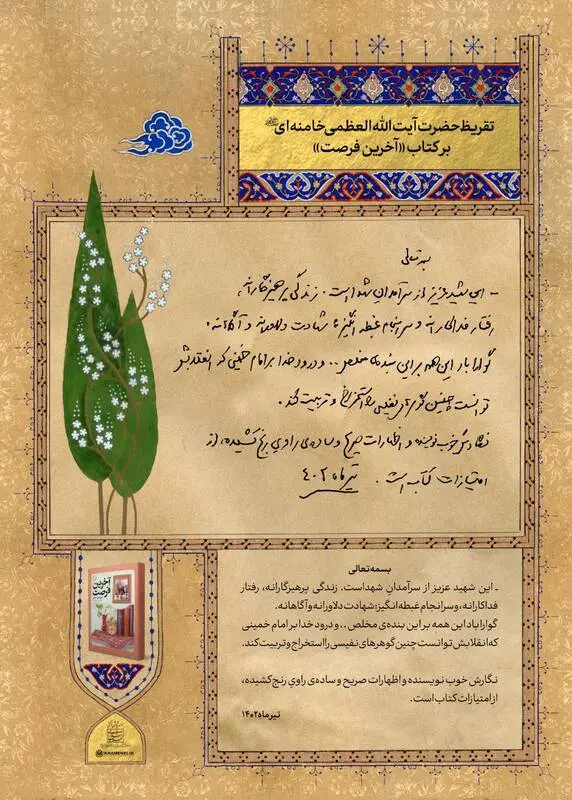 تقریظ حضرت آیت الله العظمی خامنه‌ای
بر کتاب «آخرین فرصت»
بسمه تعالی
ـ این شهید عزیز از سرآمدان شهدا است. زندگی پرهیزگارانه،
رفتار فداکارانه و سرانجام غبطه انگیز: شهادت دلاورانه و آگاهانه.
گوارا باد این همه بر این بنده‌ی مخلص .. و درود خدا بر امام خمینی که انقلابش
توانست چنین گوهرهای نفیسی را استخراج و تربیت کند.
نگارش خوب نویسنده و اظهارات صریح و ساده‌ی راوی رنج کشیده، از
امتیازات کتاب است. تیرماه ۴۰۲
بسمه تعالی
ـ این شهید عزیز از سرآمدان شهداست. زندگی پرهیزگارانه، رفتار
فداکارانه، و سرانجام غبطه انگیز: شهادت دلاورانه و آگاهانه.
گوارا باد این همه بر این بنده‌ی مخلص .. و درود خدا بر امام خمینی
که انقلابش توانست چنین گوهرهای نفیسی را استخراج و تربیت کند.
نگارش خوب نویسنده و اظهارات صریح و ساده‌ی راوی رنج کشیده،
از امتیازات کتاب است.
تیرماه ۱۴۰۲
آخرین
فرصت
KHAMENEI.IR